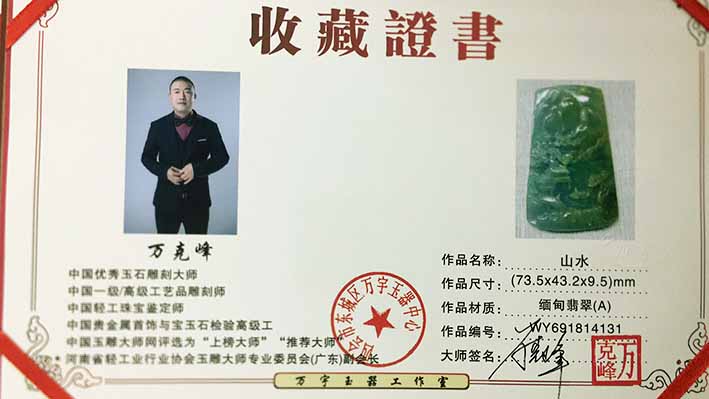 收藏證書
万克峰
中国优秀玉石雕刻大师
中国一级/高级工艺品雕刻师
中国轻工珠宝鉴定师
中国贵金属首饰与宝玉石检验高级工
中国玉雕大师网评选为“上榜大师” “推荐大师”
河南省轻工业行业协会玉雕大师专业委员会(广东)副会长
会市东城区万宇玉器中心
作品名称： 山水
作品尺寸： (73.5x43.2x9.5)mm
作品材质： 缅甸翡翠(A)
作品编号： WY691814131
大师签名：
万克峰
万宇玉器工作室